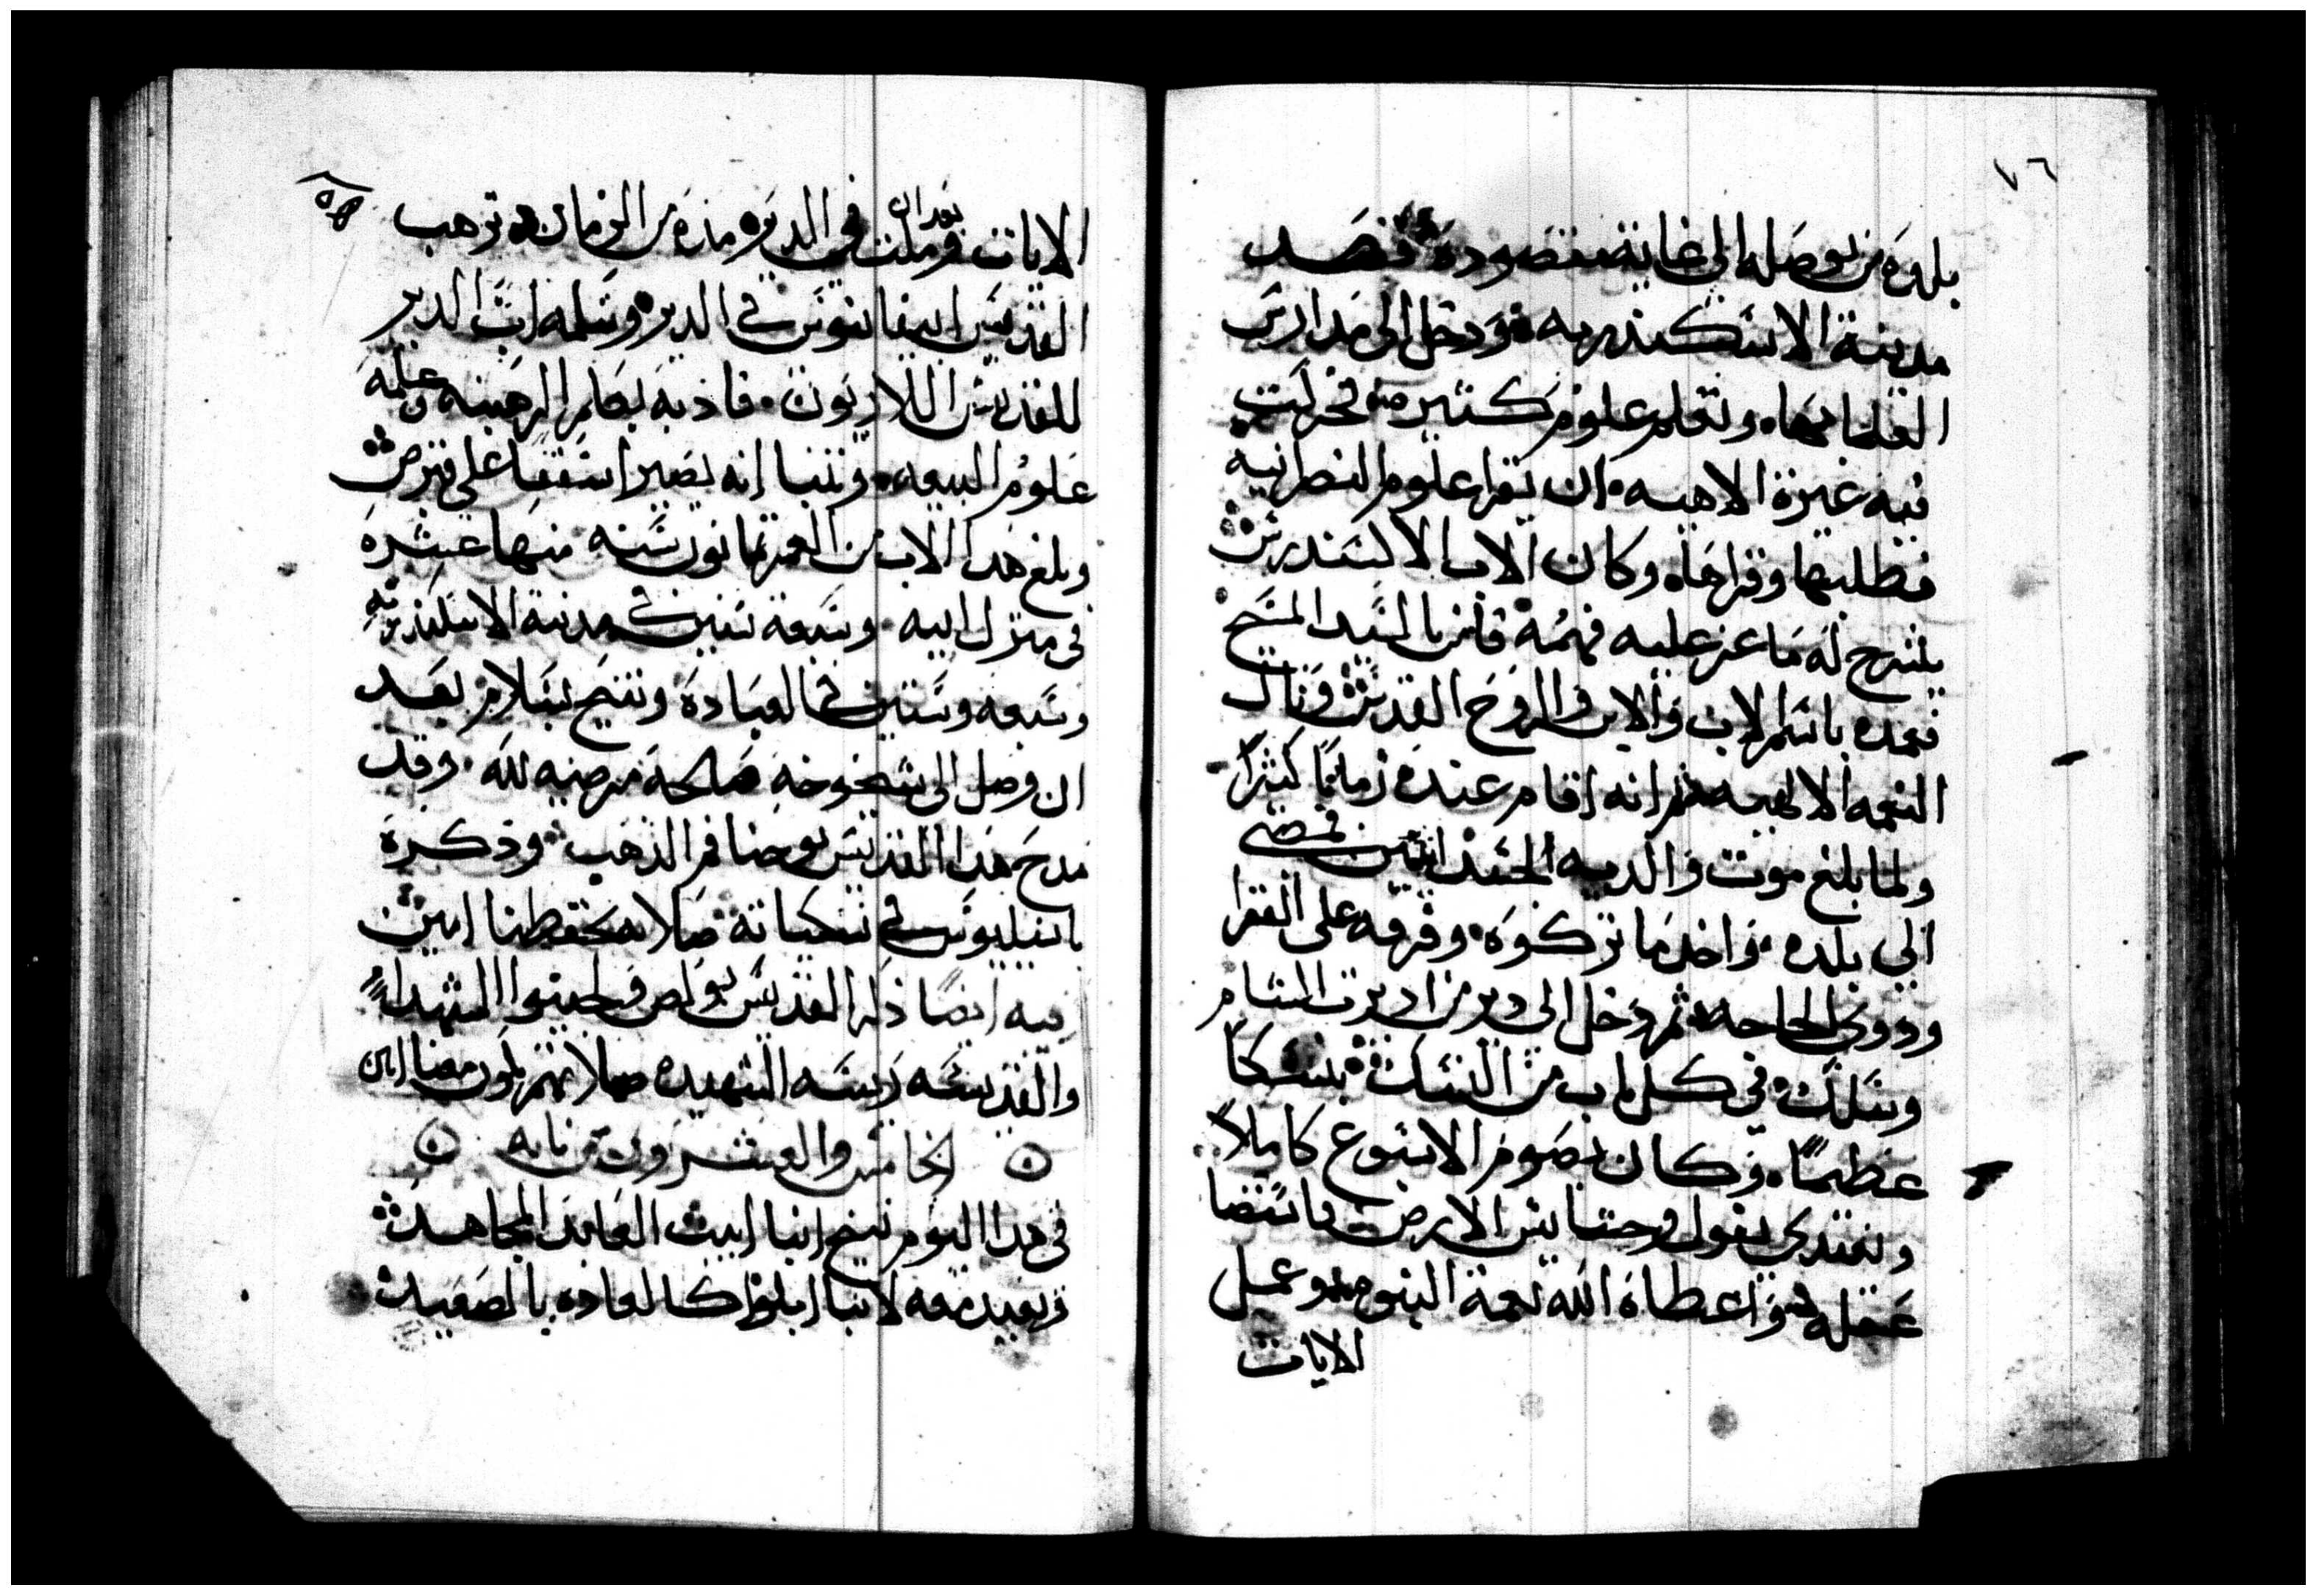 ٧٦
بلده من يوصله الي غاية مقصوده فقصد
مدينة الاسكندريه ودخل الي مدارس
العلما بها وتعلم علوم كتيره فحركت
فيه غيرة الاهيه ان يقرا علوم النصرانيه
فطلبها وقراها وكان الاب الاكسندرس
يشرح له ما عز عليه فهمه فامن بالسيد المسيح
فعمده باسم الاب والابن والروح القدس ونال
النعمه الالهيه ثم انه اقام عنده زمانًا كثيرًا
ولما بلغ موت والديه الجسدانيين فمضي
الي بلده واخد ما تركوه وفرقه علي الفقرا
ودوي الحاجه ثم دخل الي دير من اديرت الشام
وسلك في كل باب من النسك بنسكًا
عظيمًا وكان يصوم الاسبوع كاملاً
ويفتدي بقول وحشايش الارض فاستضا
عقله واعطاه الله نعمة النبوه وعمل
الايات
الايات وبعد ان مكت في الديره مده من الزمان ترهب
القديس ابيفانيوس في الدير وسلمه اب الدير
للقديس ايلاريون فادبه بعلم الرهبنه وعلمه
علوم البيعه وتنبا انه يصير اسقفا علي قبرص
وبلغ هدا الاب من العمر تمانون سنه منها عشره
في منزل ابيه وسبعة سنين في مدينة الاسكندريه
وسبعه وستين في العباده وتنيح بسلام بعد
ان وصل الي شيخوخه صالحة مرضيه لله وقد
مدح هدا القديس يوحنا فم الذهب ودكره
باسيليوس في نسكياته صلاته تحفظنا امين
فيه ايضًا ذكر القديس بولص و الشهدا
والقديسه الشهيده صلاتهم تكون معنا امين
الخامس والعشرون من بابه
في هدا اليوم تنيح انبا ابيب العابد المجاهد
ويعيد معه لانبا ابلوا كالعاده بالصعيد